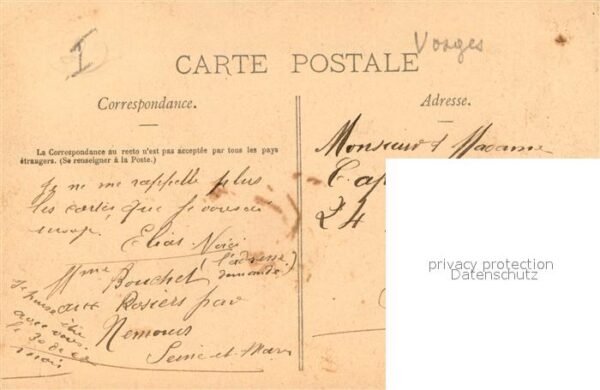 I
Vosges
CARTE POSTALE
Correspondance.
Adresse.
La Correspondance au recto n'est pas acceptée par tous les pays
étrangers. (Se renseigner à la Poste.)
Je ne me rappelle plus
les cartes que je vous ai
Elias. Voici
l'adresse
demandée)
Mme Bouchet
aux Rosiers par
Nemours
Seine-et-Marn
avec vous
le 30 de ce
mois
Monsieur & Madame
Cap
24
privacy protection
Datenschutz